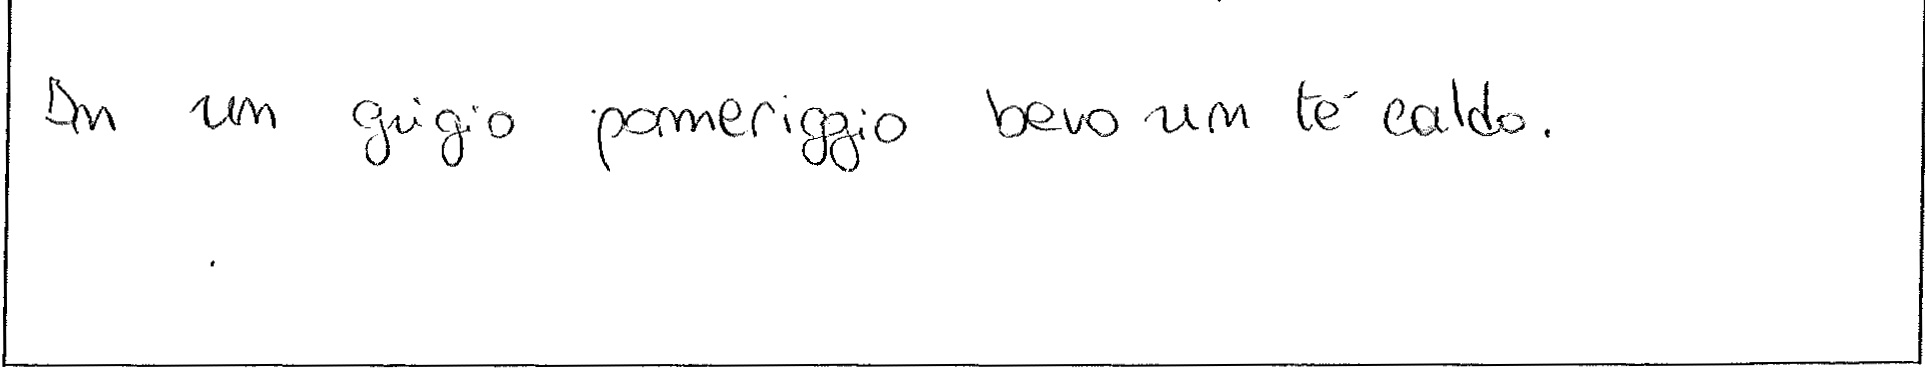 In un grigio pomeriggio bevo un té caldo.